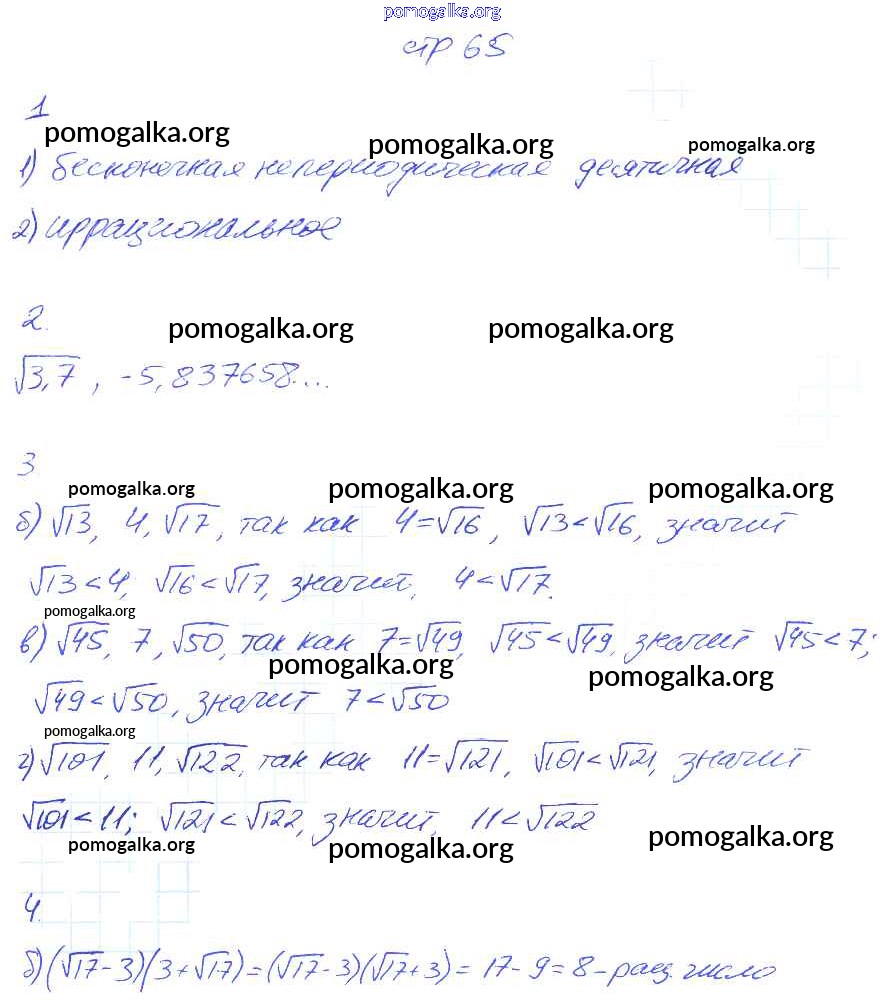 pomogalka.org
стр 65
1
pomogalka.org pomogalka.org pomogalka.org
1) бесконечная непериодическая десятичная
2) иррациональное
2.
pomogalka.org pomogalka.org
√3,7 , -5,837658...
3
pomogalka.org pomogalka.org pomogalka.org
б) √13, 4, √17, так как 4=√16, √13<√16, значит
√13<4; √16<√17, значит, 4<√17.
pomogalka.org
в) √45, 7, √50, так как 7=√49, √45<√49, значит √45<7;
pomogalka.org pomogalka.org
√49<√50, значит 7<√50
pomogalka.org
г) √101, 11, √122, так как 11=√121, √101<√121, значит
√101<11; √121<√122, значит, 11<√122
pomogalka.org pomogalka.org pomogalka.org
4.
б) (√17-3)(3+√17)=(√17-3)(√17+3)=17-9=8-рац. число